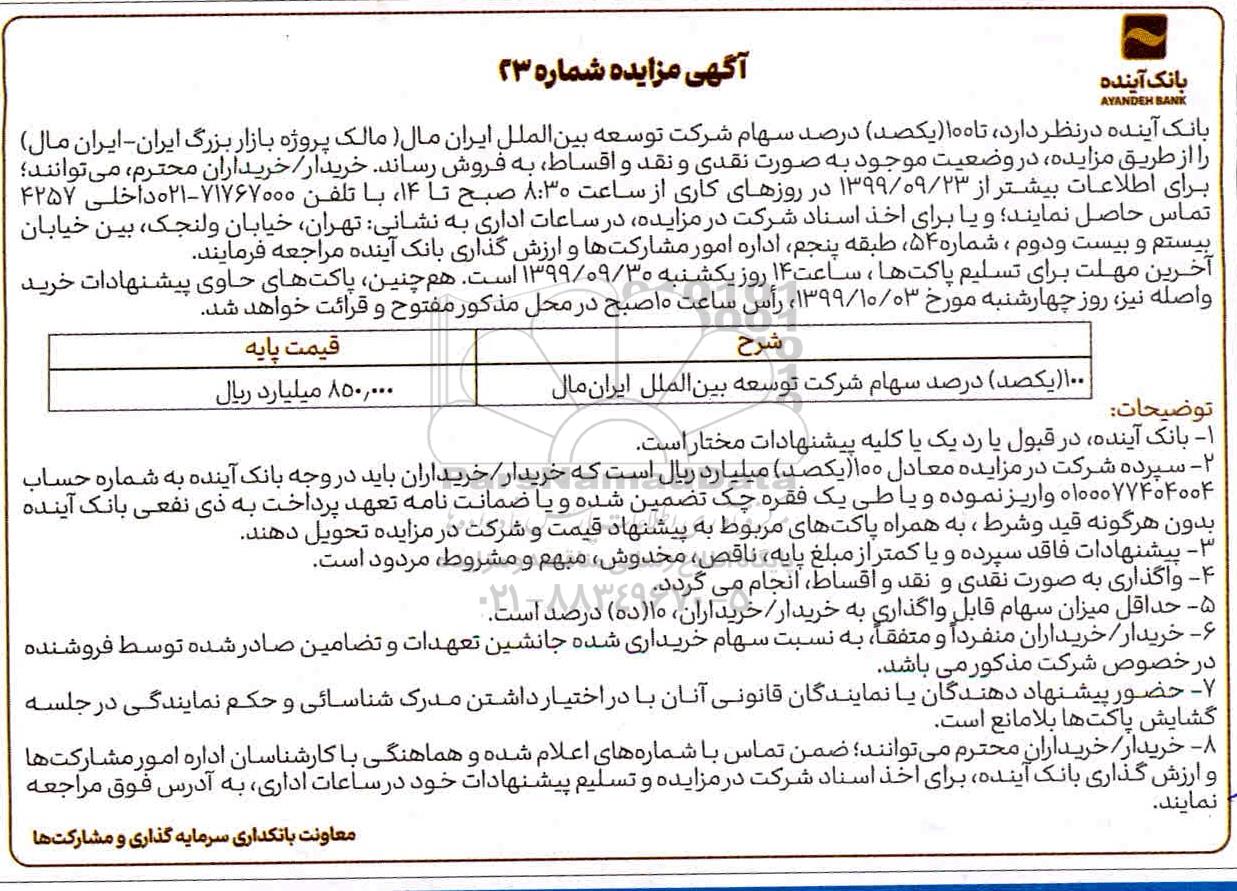 بانک آینده
AYANDEH BANK
آگهی مزایده شماره ۲۳
بانک آینده درنظر دارد، تا۱۰۰(یکصد) درصد سهام شرکت توسعه بین‌الملل ایران مال( مالک پروژه بازار بزرگ ایران-ایران مال)
را از طریق مزایده، در وضعیت موجود به صورت نقدی و نقد و اقساط، به فروش رساند. خریدار/خریداران محترم، می‌توانند؛
برای اطلاعات بیشتر از ۱۳۹۹/۰۹/۲۳ در روزهای کاری از ساعت ۸:۳۰ صبح تا ۱۴، با تلفن ۷۱۷۶۷۰۰۰-۰۲۱داخلی ۴۲۵۷
تماس حاصل نمایند؛ و یا برای اخذ اسناد شرکت در مزایده، در ساعات اداری به نشانی: تهران، خیابان ولنجک، بین خیابان
بیستم و بیست ودوم ، شماره۵۴، طبقه پنجم، اداره امور مشارکت‌ها و ارزش گذاری بانک آینده مراجعه فرمایند.
آخرین مهلت برای تسلیم پاکت‌ها ، ساعت۱۴ روز یکشنبه ۱۳۹۹/۰۹/۳۰ است. هم‌چنین، پاکت‌های حاوی پیشنهادات خرید
واصله نیز، روز چهارشنبه مورخ ۱۳۹۹/۱۰/۰۳، رأس ساعت ۱۰صبح در محل مذکور مفتوح و قرائت خواهد شد.
شرح قیمت پایه
۱۰۰(یکصد) درصد سهام شرکت توسعه بین‌الملل ایران‌مال ۸۵۰,۰۰۰ میلیارد ریال
توضیحات:
۱- بانک آینده، در قبول یا رد یک یا کلیه پیشنهادات مختار است.
۲- سپرده شرکت در مزایده معادل ۱۰۰(یکصد) میلیارد ریال است که خریدار/خریداران باید در وجه بانک آینده به شماره حساب
۰۱۰۰۰۷۷۴۰۴۰۰۴ واریز نموده و یا طی یک فقره چک تضمین شده و یا ضمانت نامه تعهد پرداخت به ذی نفعی بانک آینده
بدون هرگونه قید وشرط ، به همراه پاکت‌های مربوط به پیشنهاد قیمت و شرکت در مزایده تحویل دهند.
۳- پیشنهادات فاقد سپرده و یا کمتر از مبلغ پایه، ناقص، مخدوش، مبهم و مشروط، مردود است.
۴- واگذاری به صورت نقدی و نقد و اقساط، انجام می گردد.
۵- حداقل میزان سهام قابل واگذاری به خریدار/خریداران، ۱۰(ده) درصد است.
۶- خریدار/خریداران منفرداً و متفقاً، به نسبت سهام خریداری شده جانشین تعهدات و تضامین صادر شده توسط فروشنده
در خصوص شرکت مذکور می باشد.
۷- حضور پیشنهاد دهندگان یا نمایندگان قانونی آنان با در اختیار داشتن مدرک شناسائی و حکم نمایندگی در جلسه
گشایش پاکت‌ها بلامانع است.
۸- خریدار/خریداران محترم می‌توانند؛ ضمن تماس با شماره‌های اعلام شده و هماهنگی با کارشناسان اداره امور مشارکت‌ها
و ارزش گذاری بانک آینده، برای اخذ اسناد شرکت در مزایده و تسلیم پیشنهادات خود در ساعات اداری، به آدرس فوق مراجعه
نمایند.
معاونت بانکداری سرمایه گذاری و مشارکت‌ها
ParsNamadData
۰۲۱-۸۸۳۴۹۶۷۰-۵